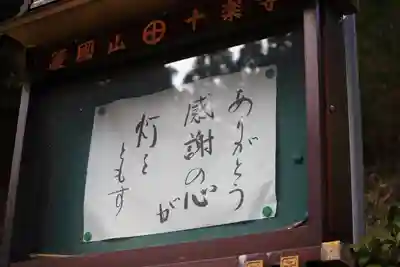 護國山 十楽寺
ありがとう
感謝の心が
灯を
ともす